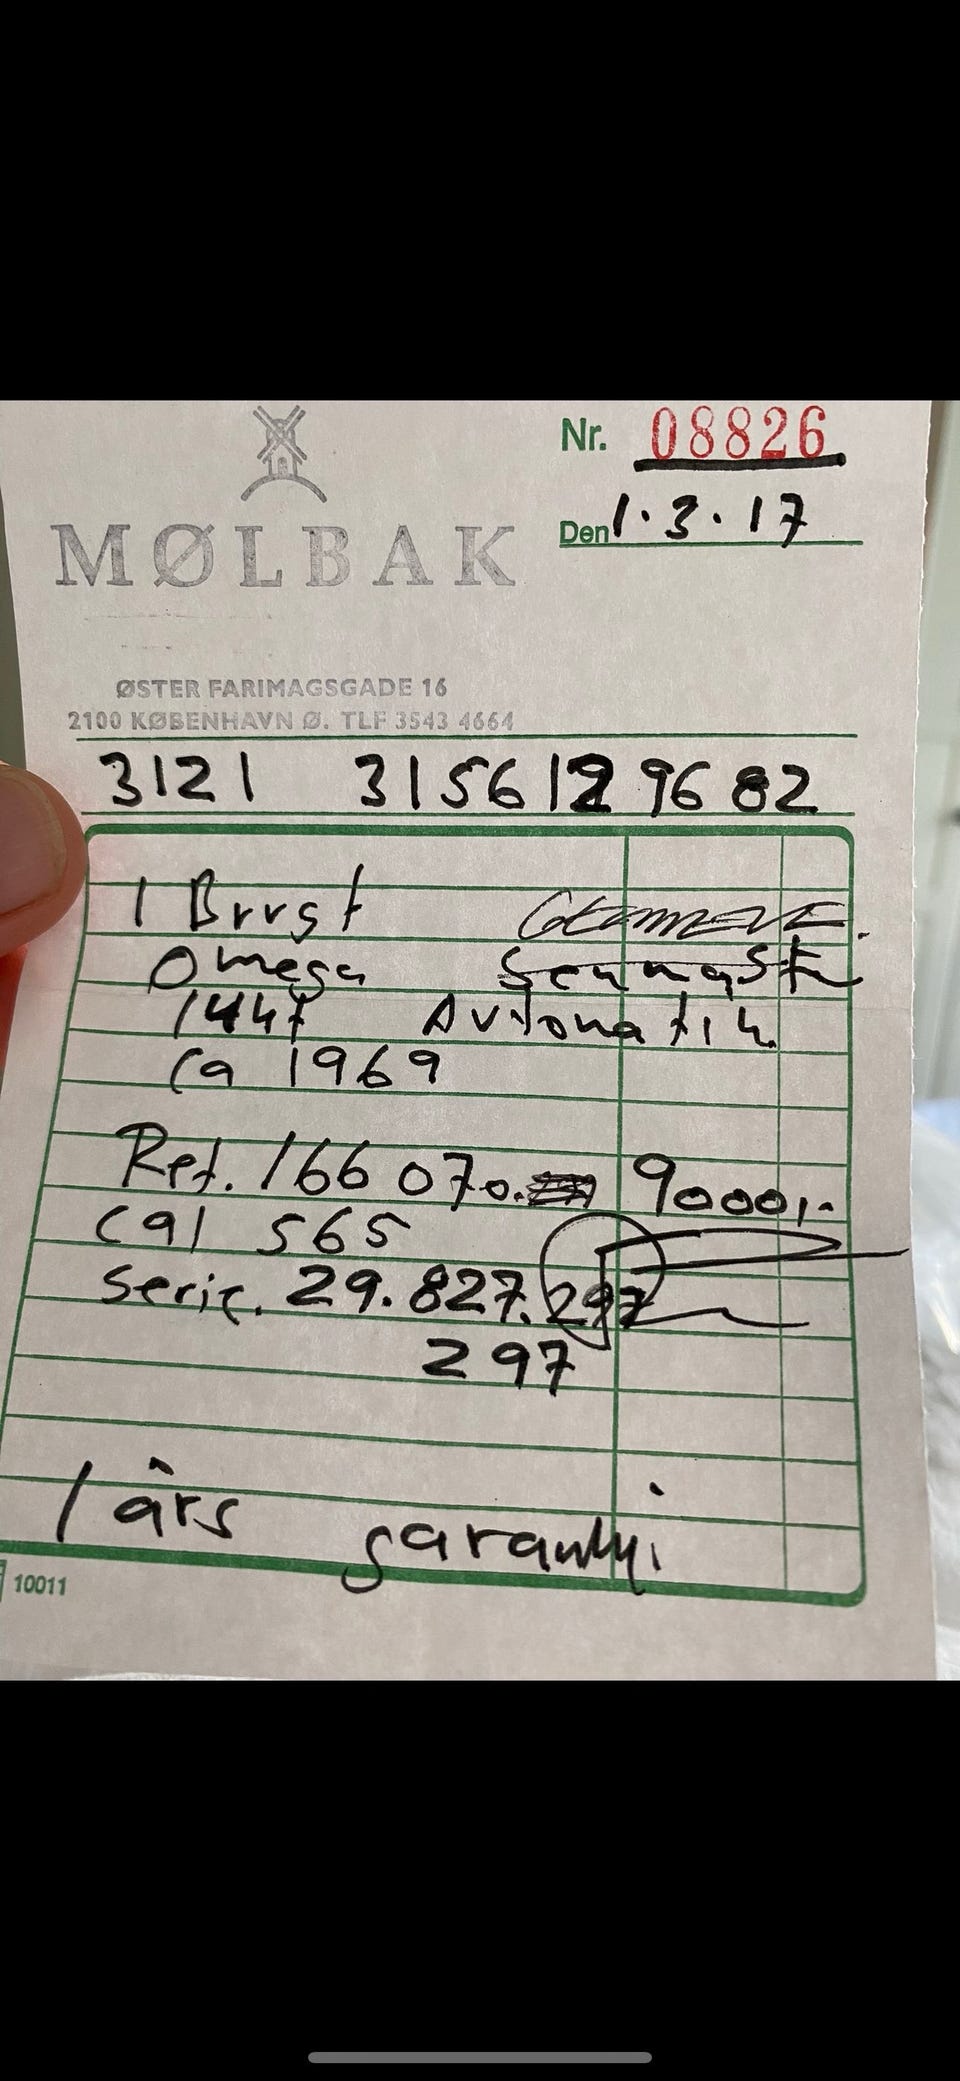 Nr. 08826
Den 1.3.17
MØLBAK
ØSTER FARIMAGSGADE 16
2100 KØBENHAVN Ø. TLF 3543 4664
3121 3156129682
1 Brugt
Omega
144f Automatik
ca 1969
Ref. 166 070. 9000,-
cal 565
Serie. 29.827.297
297
1 års garanti
10011